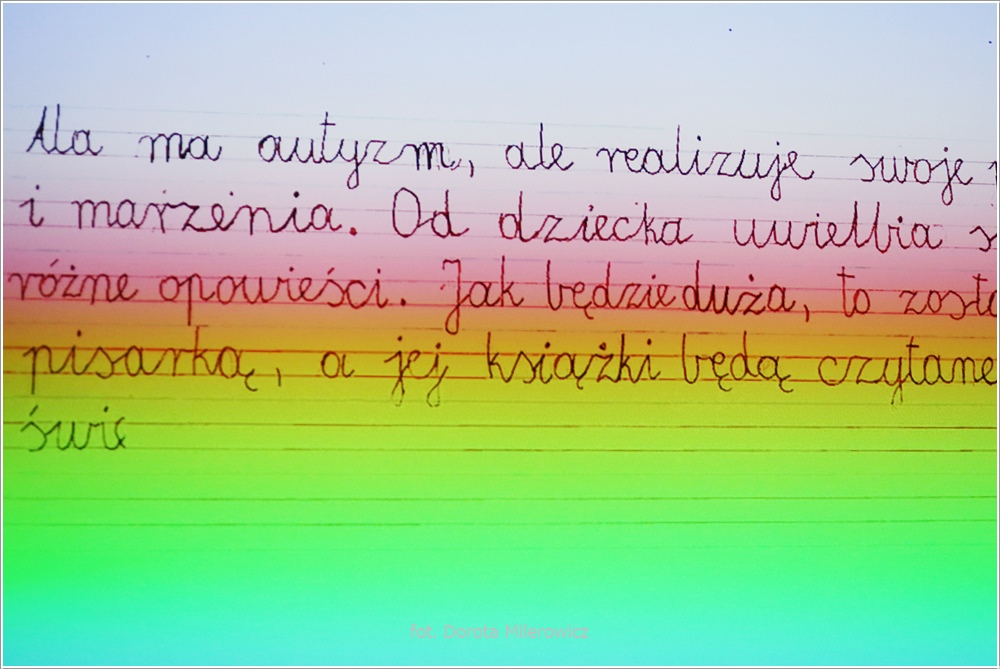 Ala ma autyzm, ale realizuje swoje
i marzenia. Od dziecka uwielbia
różne opowieści. Jak będzie duża, to
pisarką, a jej książki będą czytane
świe
fot. Dorota Milerowicz